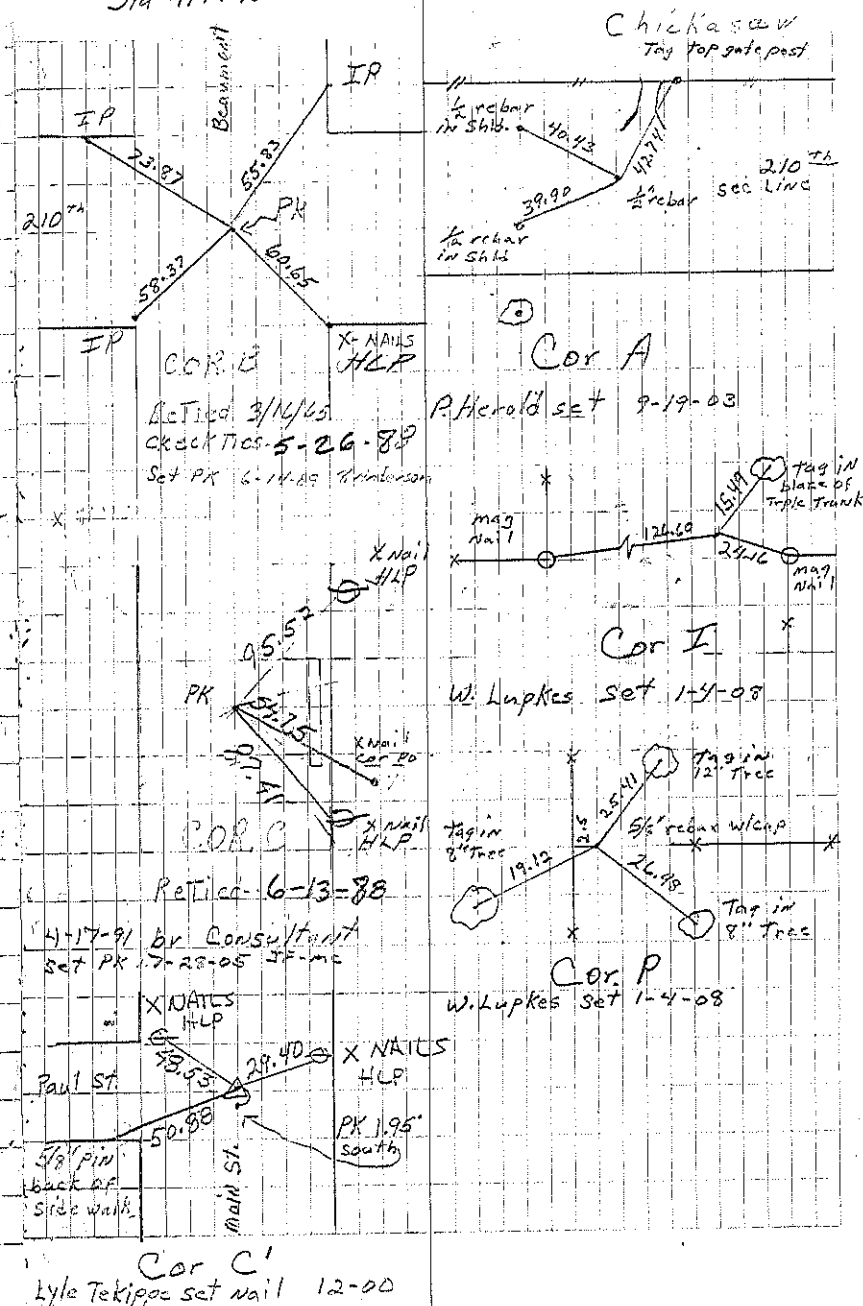 Beaumont
IP
IP
73.87
55.83
210th
PK
58.37
60.65
IP
X-NAILS
HLP
COR B
ReTied 3/16/65
check Ties 5-26-88
Set PK
X Nail
HLP
95.52
PK
54.75
X Nail
cor po
X Nail
HLP
COR. C
ReTied 6-13-88
4-17-91 by Consultant
Set PK 7-28-05 JF-MC
X NAILS
HLP
48.53
29.40
X NAILS
HLP
Paul St.
50.88
PK 1.95'
south
5/8" pin
back of
side walk
Main St.
Cor C'
Lyle Tekippe set nail 12-00
Chickasaw
Tag top gate post
1/2 rebar
in Shld.
40.43
42.74
210th
sec Line
39.90
1/2" rebar
1/2 rebar
in Shld
Cor A
P. Herold set 9-19-03
tag in
blaze of
Triple Trunk
15.49
mag
Nail
126.60
24.16
mag
Nail
Cor I
W. Lupkes set 1-4-08
Tag in
12" Tree
25.41
tag in
8" Tree
2.5
5/8" rebar w/cap
19.12
26.48
Tag in
8" Tree
Cor. P
W. Lupkes set 1-4-08